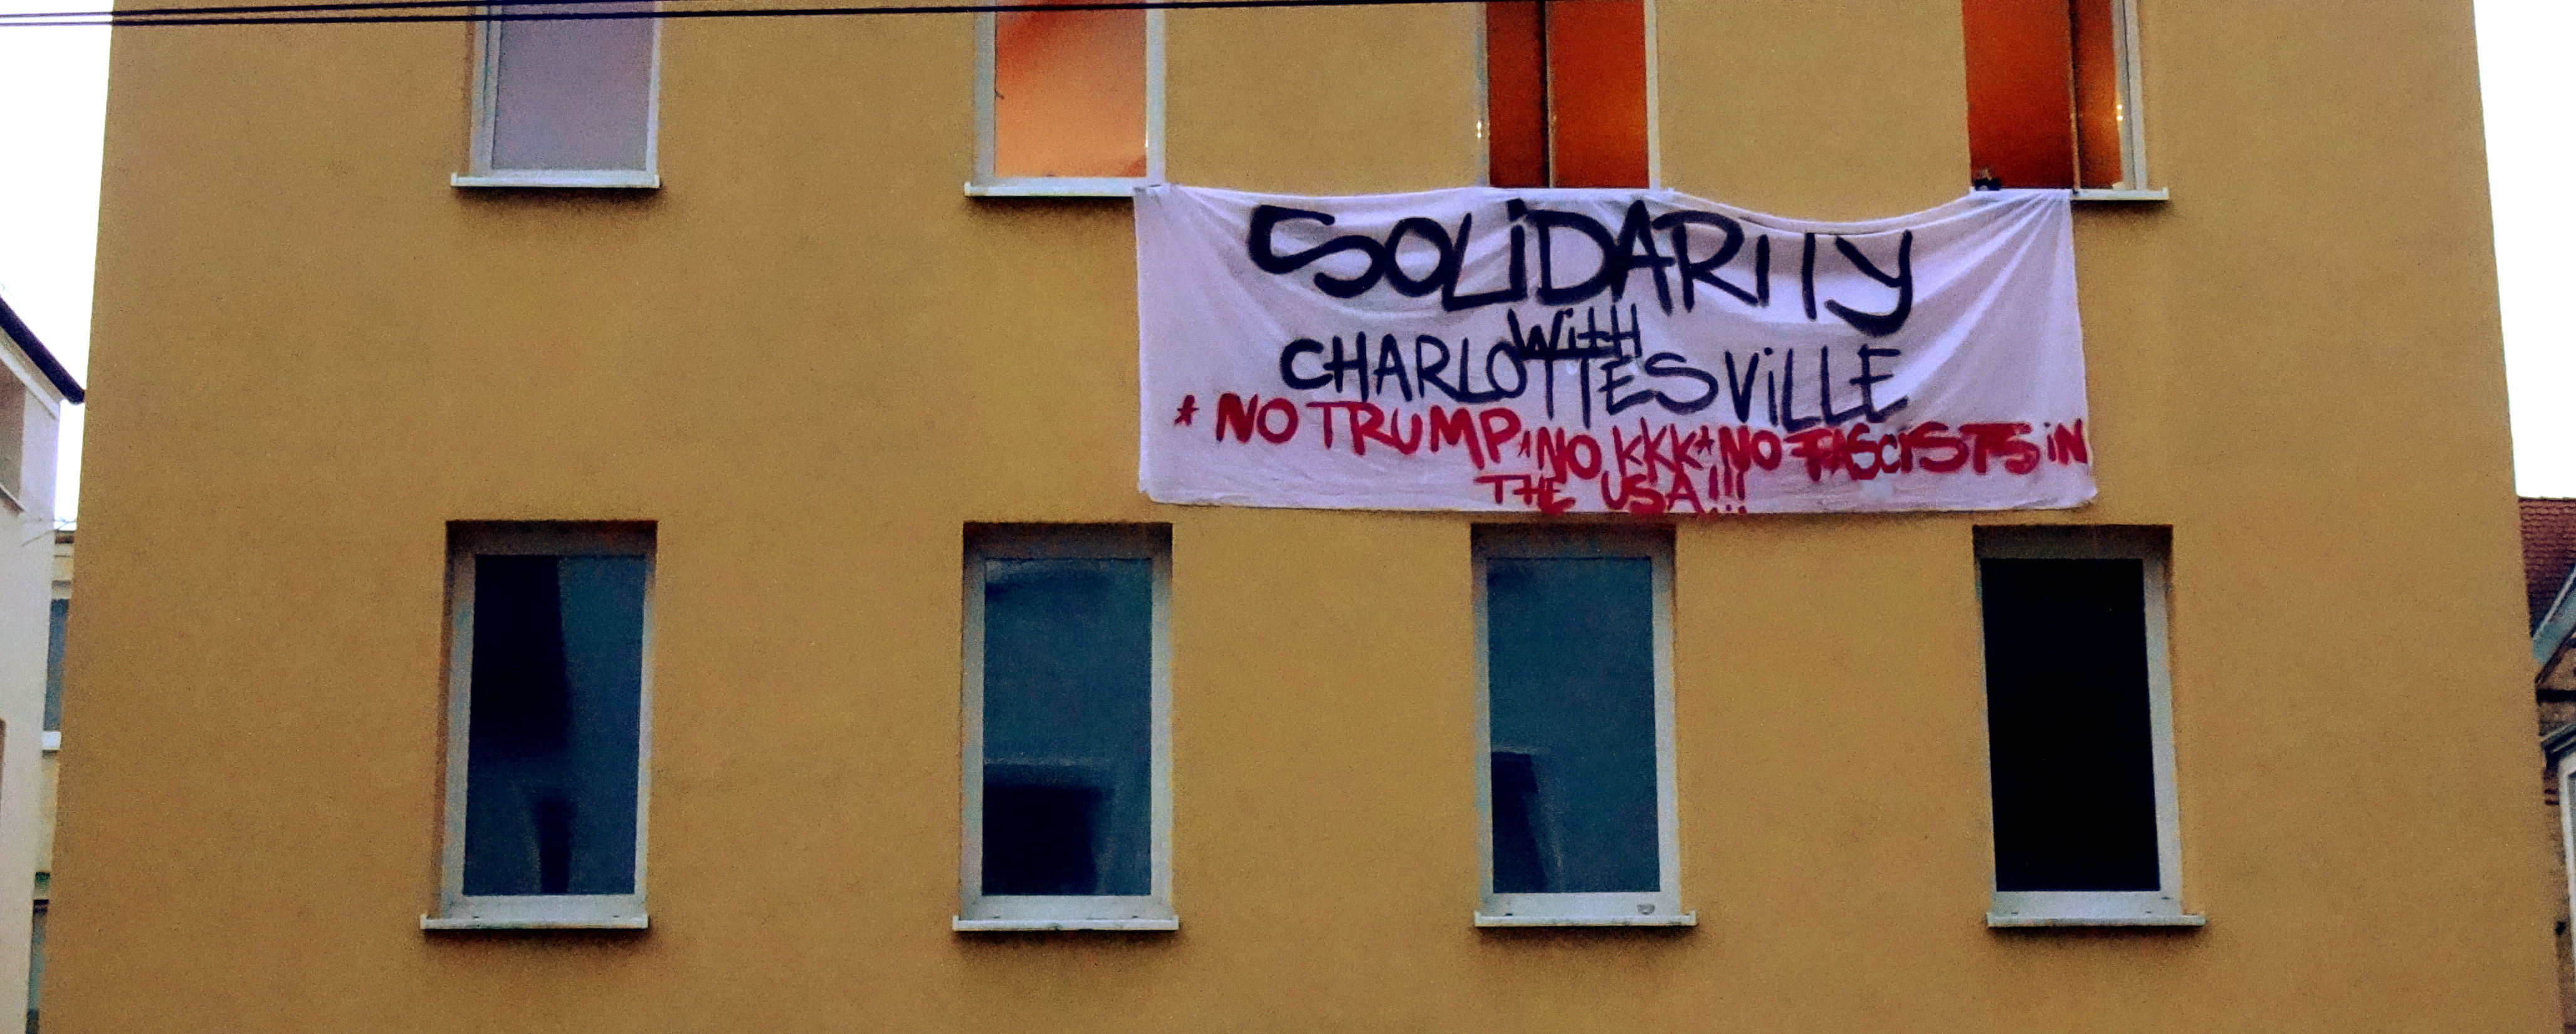 SOLiDARITY
WitH
CHARLOTTESViLLE
* NO TRUMP * NO KKK * NO FASCISTS iN
THE USA!!!